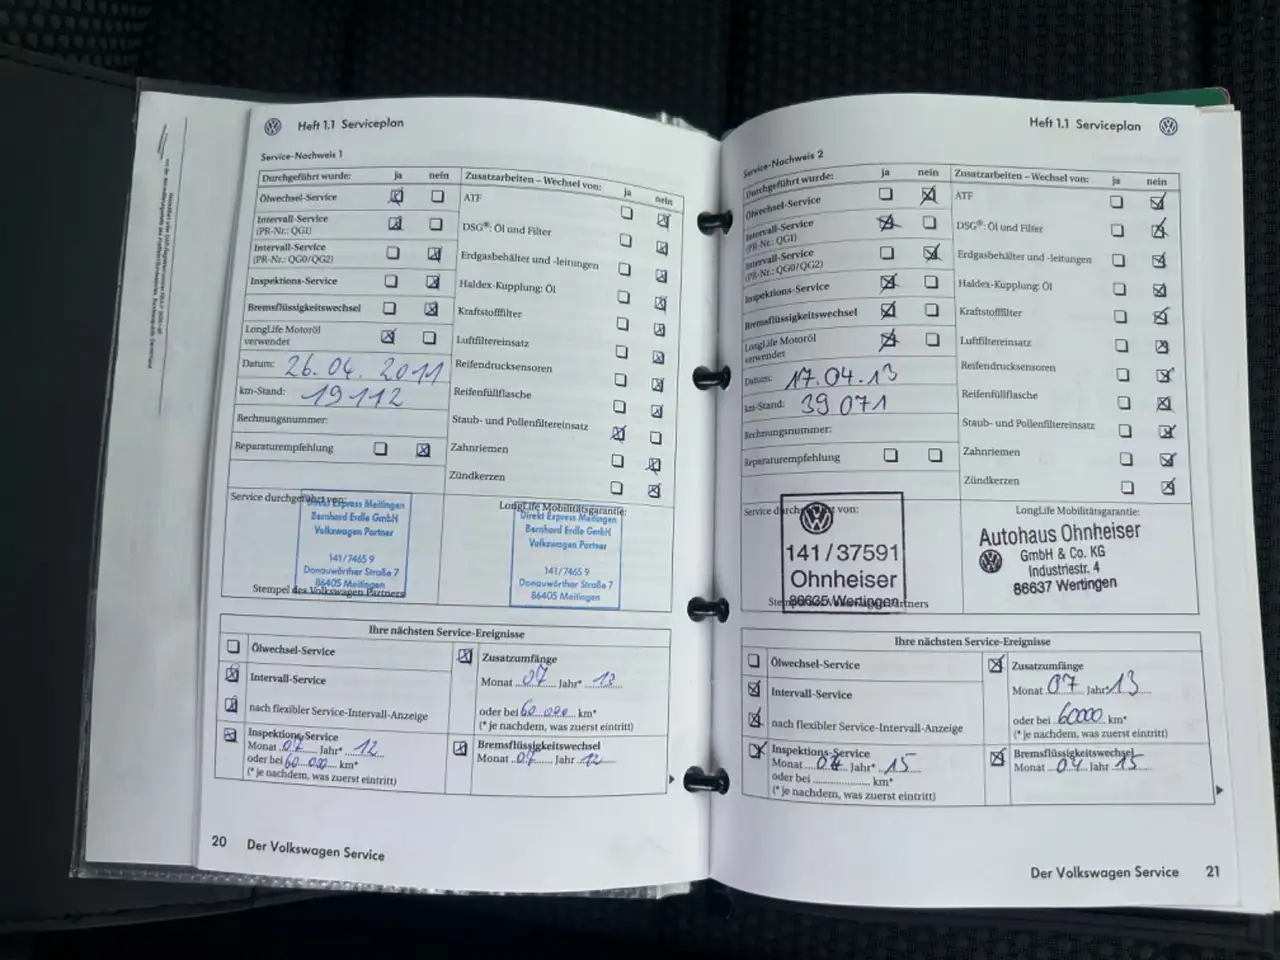 Heft 1.1 Serviceplan
Service-Nachweis 1
Durchgeführt wurde: ja nein
Ölwechsel-Service
Intervall-Service
(PR-Nr.: QG1)
Intervall-Service
(PR-Nr.: QG0/QG2)
Inspektions-Service
Bremsflüssigkeitswechsel
LongLife Motoröl
verwendet
Datum: 26.04.2011
km-Stand: 19112
Rechnungsnummer:
Reparaturempfehlung
Zusatzarbeiten – Wechsel von: ja nein
ATF
DSG®: Öl und Filter
Erdgasbehälter und -leitungen
Haldex-Kupplung: Öl
Kraftstofffilter
Luftfiltereinsatz
Reifendrucksensoren
Reifenfüllflasche
Staub- und Pollenfiltereinsatz
Zahnriemen
Zündkerzen
Service durchgeführt von:
Direkt Express Meitingen
Bernhard Erdle GmbH
Volkswagen Partner
141/7465 9
Donauwörther Straße 7
86405 Meitingen
Stempel des Volkswagen Partners
LongLife Mobilitätsgarantie:
Direkt Express Meitingen
Bernhard Erdle GmbH
Volkswagen Partner
141/7465 9
Donauwörther Straße 7
86405 Meitingen
Ihre nächsten Service-Ereignisse
Ölwechsel-Service
Intervall-Service
nach flexibler Service-Intervall-Anzeige
Inspektions-Service
Monat 07 Jahr* 12
oder bei 60 000 km*
(* je nachdem, was zuerst eintritt)
Zusatzumfänge
Monat 07 Jahr* 13
oder bei 60 000 km*
(* je nachdem, was zuerst eintritt)
Bremsflüssigkeitswechsel
Monat 07 Jahr 12
20 Der Volkswagen Service
Heft 1.1 Serviceplan
Service-Nachweis 2
Durchgeführt wurde: ja nein
Ölwechsel-Service
Intervall-Service
(PR-Nr.: QG1)
Intervall-Service
(PR-Nr.: QG0/QG2)
Inspektions-Service
Bremsflüssigkeitswechsel
LongLife Motoröl
verwendet
Datum: 17.04.13
km-Stand: 39 071
Rechnungsnummer:
Reparaturempfehlung
Zusatzarbeiten – Wechsel von: ja nein
ATF
DSG®: Öl und Filter
Erdgasbehälter und -leitungen
Haldex-Kupplung: Öl
Kraftstofffilter
Luftfiltereinsatz
Reifendrucksensoren
Reifenfüllflasche
Staub- und Pollenfiltereinsatz
Zahnriemen
Zündkerzen
Service durchgeführt von:
141/37591
Ohnheiser
86635 Wertingen
LongLife Mobilitätsgarantie:
Autohaus Ohnheiser
GmbH & Co. KG
Industriestr. 4
86637 Wertingen
Ihre nächsten Service-Ereignisse
Ölwechsel-Service
Intervall-Service
nach flexibler Service-Intervall-Anzeige
Inspektions-Service
Monat 04 Jahr* 15
oder bei km*
(* je nachdem, was zuerst eintritt)
Zusatzumfänge
Monat 07 Jahr* 13
oder bei 60000 km*
(* je nachdem, was zuerst eintritt)
Bremsflüssigkeitswechsel
Monat 04 Jahr 15
Der Volkswagen Service 21